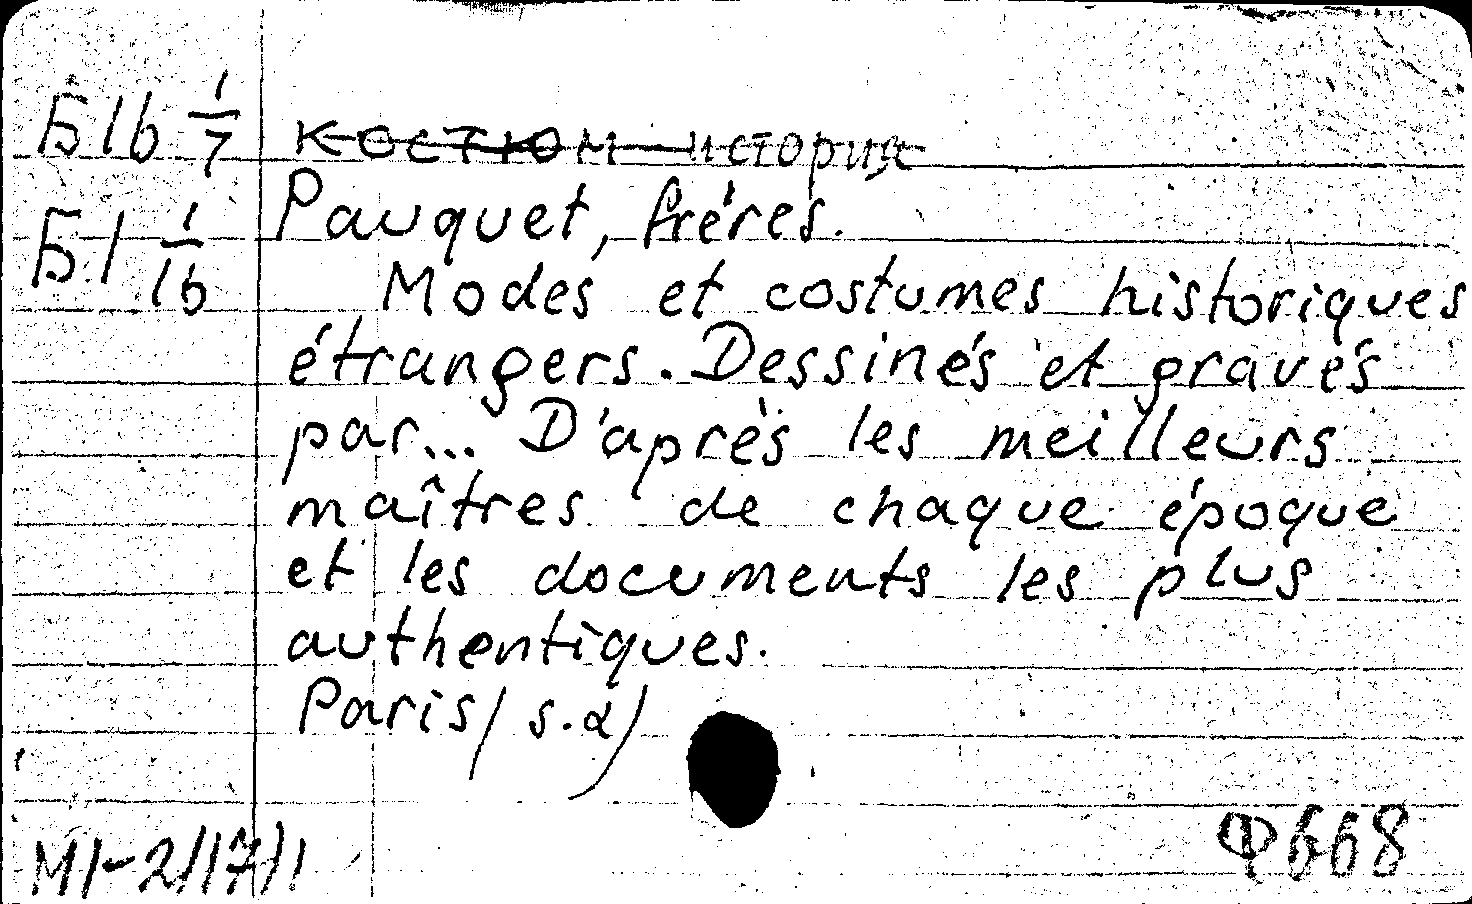 Б1б 1/7
костюм - история
Pauquet, fréres.
Б1 1/1б
Modes et costumes historiques
étrangers. Dessinés et gravés
par... D'après les meilleurs
maîtres de chaque époque
et les documents les plus
authentiques.
Paris / s.a)
М1-2/17/1
Ф668